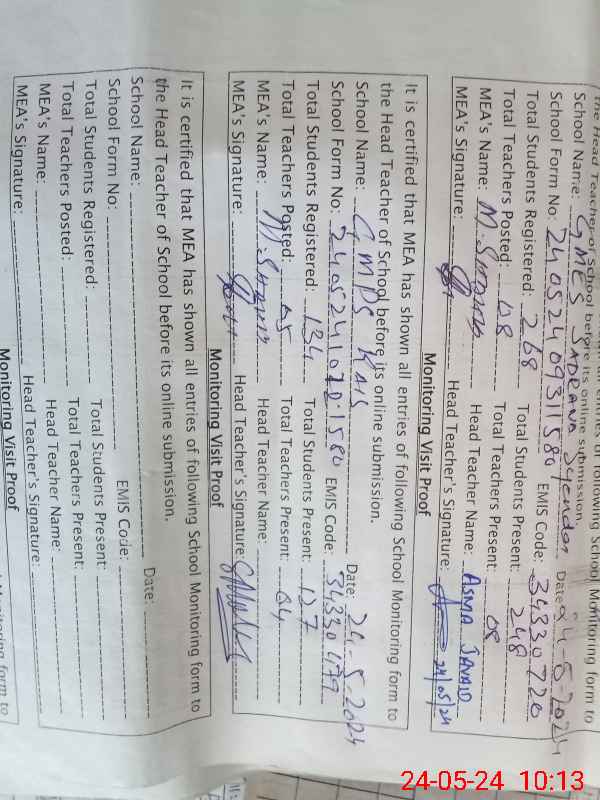 the Head Teacher of School before its online submission.
School Name: GMES SADRANA Syendos Date: 24-5-2024
School Form No: 2405240931580 EMIS Code: 34330720
Total Students Registered: 268 Total Students Present: 248
Total Teachers Posted: 08 Total Teachers Present: 08
MEA's Name: Head Teacher Name: ASMA JAVAID
MEA's Signature: Head Teacher's Signature: 24/05/24
Monitoring Visit Proof
It is certified that MEA has shown all entries of following School Monitoring form to
the Head Teacher of School before its online submission.
School Name: GMPS KAIS Date: 24-5-2024
School Form No: 2405241071580 EMIS Code: 34330479
Total Students Registered: 134 Total Students Present: 127
Total Teachers Posted: 05 Total Teachers Present: 04
MEA's Name: Head Teacher Name:
MEA's Signature: Head Teacher's Signature:
Monitoring Visit Proof
It is certified that MEA has shown all entries of following School Monitoring form to
the Head Teacher of School before its online submission.
School Name: Date:
School Form No: EMIS Code:
Total Students Registered: Total Students Present:
Total Teachers Posted: Total Teachers Present:
MEA's Name: Head Teacher Name:
MEA's Signature: Head Teacher's Signature:
Monitoring Visit Proof
24-05-24 10:13